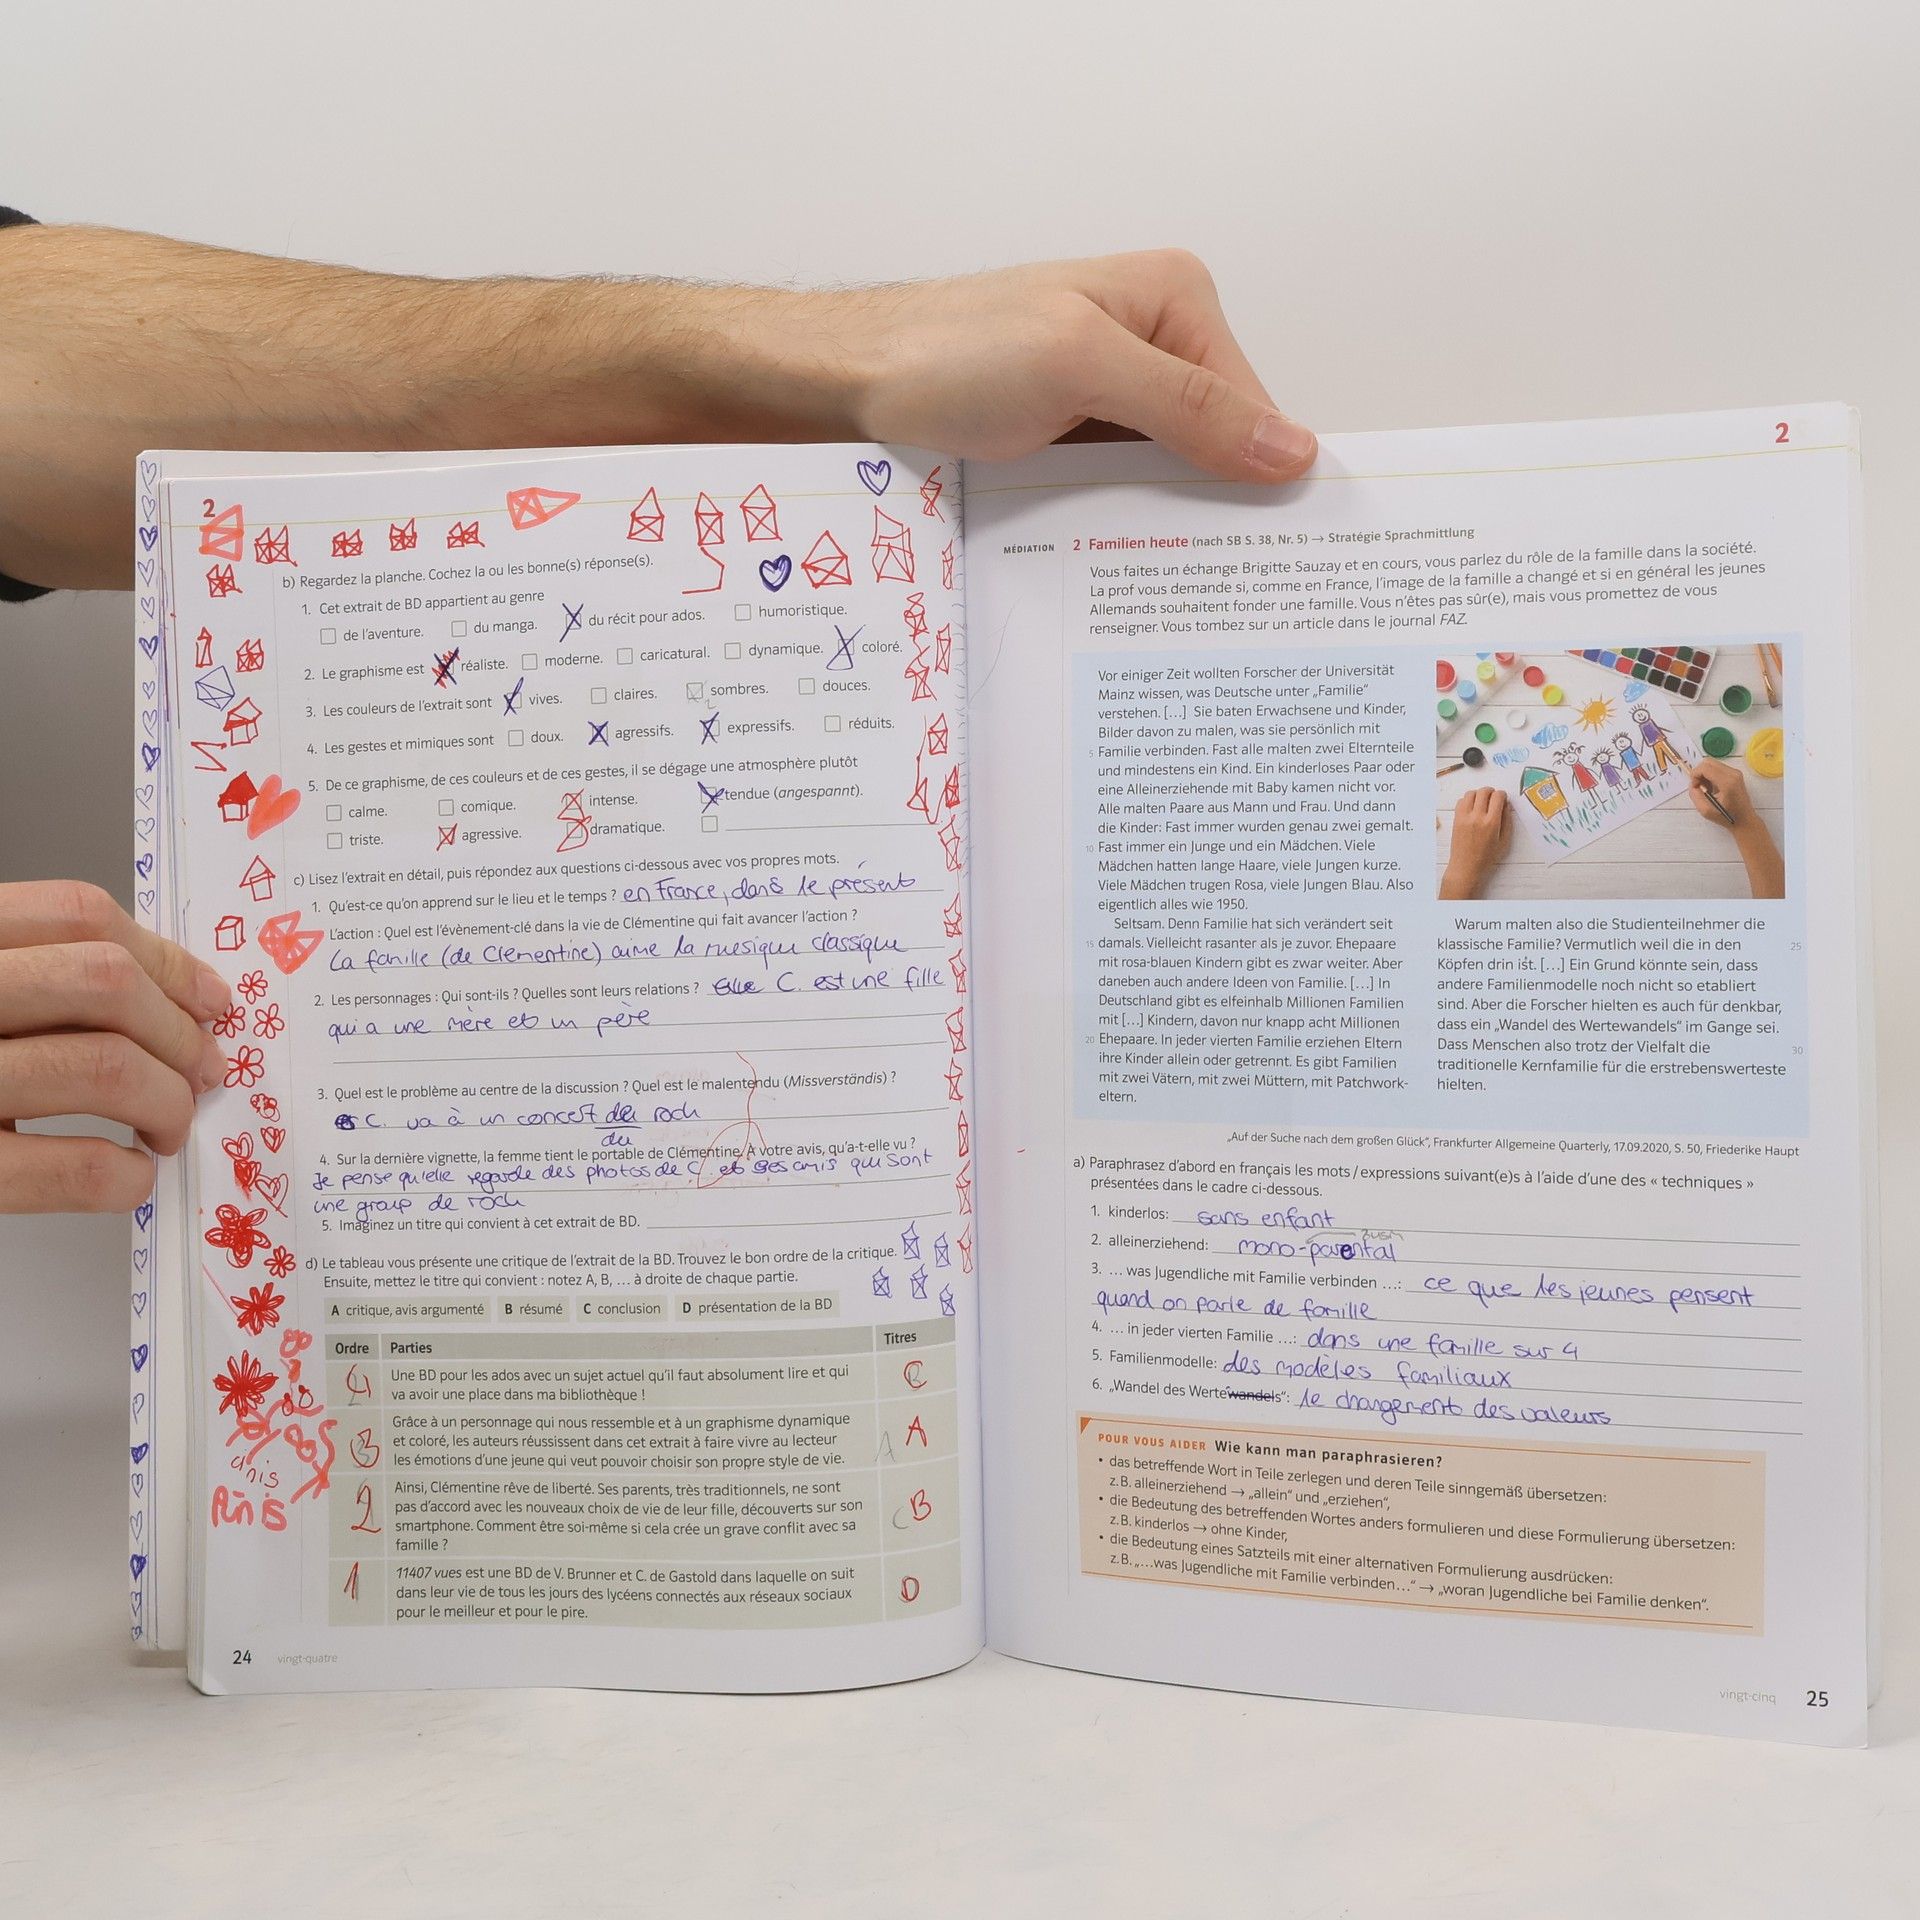 2
b) Regardez la planche. Cochez la ou les bonne(s) réponse(s).
1. Cet extrait de BD appartient au genre
de l'aventure. du manga. du récit pour ados. humoristique.
2. Le graphisme est réaliste. moderne. caricatural. dynamique. coloré.
3. Les couleurs de l'extrait sont vives. claires. sombres. douces.
4. Les gestes et mimiques sont doux. agressifs. expressifs. réduits.
5. De ce graphisme, de ces couleurs et de ces gestes, il se dégage une atmosphère plutôt
calme. comique. intense. tendue (angespannt).
triste. agressive. dramatique.
c) Lisez l'extrait en détail, puis répondez aux questions ci-dessous avec vos propres mots.
1. Qu'est-ce qu'on apprend sur le lieu et le temps ? en France, dans le présent
L'action : Quel est l'évènement-clé dans la vie de Clémentine qui fait avancer l'action ?
La famille (de Clementine) aime la musique classique
2. Les personnages : Qui sont-ils ? Quelles sont leurs relations ? C. est une fille
qui a une mère et un père
3. Quel est le problème au centre de la discussion ? Quel est le malentendu (Missverständis) ?
C. va à un concert de rock
du
4. Sur la dernière vignette, la femme tient le portable de Clémentine. À votre avis, qu'a-t-elle vu ?
Je pense qu'elle regarde des photos de C. et ses amis qui sont
une group de rock
5. Imaginez un titre qui convient à cet extrait de BD.
d) Le tableau vous présente une critique de l'extrait de la BD. Trouvez le bon ordre de la critique.
Ensuite, mettez le titre qui convient : notez A, B, ... à droite de chaque partie.
A critique, avis argumenté B résumé C conclusion D présentation de la BD
Ordre Parties Titres
4 Une BD pour les ados avec un sujet actuel qu'il faut absolument lire et qui C
va avoir une place dans ma bibliothèque !
3 Grâce à un personnage qui nous ressemble et à un graphisme dynamique A
et coloré, les auteurs réussissent dans cet extrait à faire vivre au lecteur
les émotions d'une jeune qui veut pouvoir choisir son propre style de vie.
2 Ainsi, Clémentine rêve de liberté. Ses parents, très traditionnels, ne sont B
pas d'accord avec les nouveaux choix de vie de leur fille, découverts sur son
smartphone. Comment être soi-même si cela crée un grave conflit avec sa
famille ?
1 11407 vues est une BD de V. Brunner et C. de Gastold dans laquelle on suit D
dans leur vie de tous les jours des lycéens connectés aux réseaux sociaux
pour le meilleur et pour le pire.
anis
24 vingt-quatre
2
MÉDIATION 2 Familien heute (nach SB S. 38, Nr. 5) → Stratégie Sprachmittlung
Vous faites un échange Brigitte Sauzay et en cours, vous parlez du rôle de la famille dans la société.
La prof vous demande si, comme en France, l'image de la famille a changé et si en général les jeunes
Allemands souhaitent fonder une famille. Vous n'êtes pas sûr(e), mais vous promettez de vous
renseigner. Vous tombez sur un article dans le journal FAZ.
Vor einiger Zeit wollten Forscher der Universität
Mainz wissen, was Deutsche unter „Familie"
verstehen. [...] Sie baten Erwachsene und Kinder,
Bilder davon zu malen, was sie persönlich mit
5 Familie verbinden. Fast alle malten zwei Elternteile
und mindestens ein Kind. Ein kinderloses Paar oder
eine Alleinerziehende mit Baby kamen nicht vor.
Alle malten Paare aus Mann und Frau. Und dann
die Kinder: Fast immer wurden genau zwei gemalt.
10 Fast immer ein Junge und ein Mädchen. Viele
Mädchen hatten lange Haare, viele Jungen kurze.
Viele Mädchen trugen Rosa, viele Jungen Blau. Also
eigentlich alles wie 1950.
Seltsam. Denn Familie hat sich verändert seit
15 damals. Vielleicht rasanter als je zuvor. Ehepaare
mit rosa-blauen Kindern gibt es zwar weiter. Aber
daneben auch andere Ideen von Familie. [...] In
Deutschland gibt es elfeinhalb Millionen Familien
mit [...] Kindern, davon nur knapp acht Millionen
20 Ehepaare. In jeder vierten Familie erziehen Eltern
ihre Kinder allein oder getrennt. Es gibt Familien
mit zwei Vätern, mit zwei Müttern, mit Patchwork-
eltern.
Warum malten also die Studienteilnehmer die
klassische Familie? Vermutlich weil die in den 25
Köpfen drin ist. [...] Ein Grund könnte sein, dass
andere Familienmodelle noch nicht so etabliert
sind. Aber die Forscher hielten es auch für denkbar,
dass ein „Wandel des Wertewandels" im Gange sei.
Dass Menschen also trotz der Vielfalt die 30
traditionelle Kernfamilie für die erstrebenswerteste
hielten.
„Auf der Suche nach dem großen Glück", Frankfurter Allgemeine Quarterly, 17.09.2020, S. 50, Friederike Haupt
a) Paraphrasez d'abord en français les mots / expressions suivant(e)s à l'aide d'une des « techniques »
présentées dans le cadre ci-dessous.
1. kinderlos: sans enfant
2. alleinerziehend: mono-parental
3. ... was Jugendliche mit Familie verbinden ...: ce que les jeunes pensent
quand on parle de famille
4. ... in jeder vierten Familie ...: dans une famille sur 4
5. Familienmodelle: des modèles familiaux
6. „Wandel des Wertewandels": le changement des valeurs
POUR VOUS AIDER Wie kann man paraphrasieren?
• das betreffende Wort in Teile zerlegen und deren Teile sinngemäß übersetzen:
z.B. alleinerziehend → „allein" und „erziehen",
• die Bedeutung des betreffenden Wortes anders formulieren und diese Formulierung übersetzen:
z.B. kinderlos → ohne Kinder,
• die Bedeutung eines Satzteils mit einer alternativen Formulierung ausdrücken:
z.B. „...was Jugendliche mit Familie verbinden..." → „woran Jugendliche bei Familie denken".
vingt-cinq 25